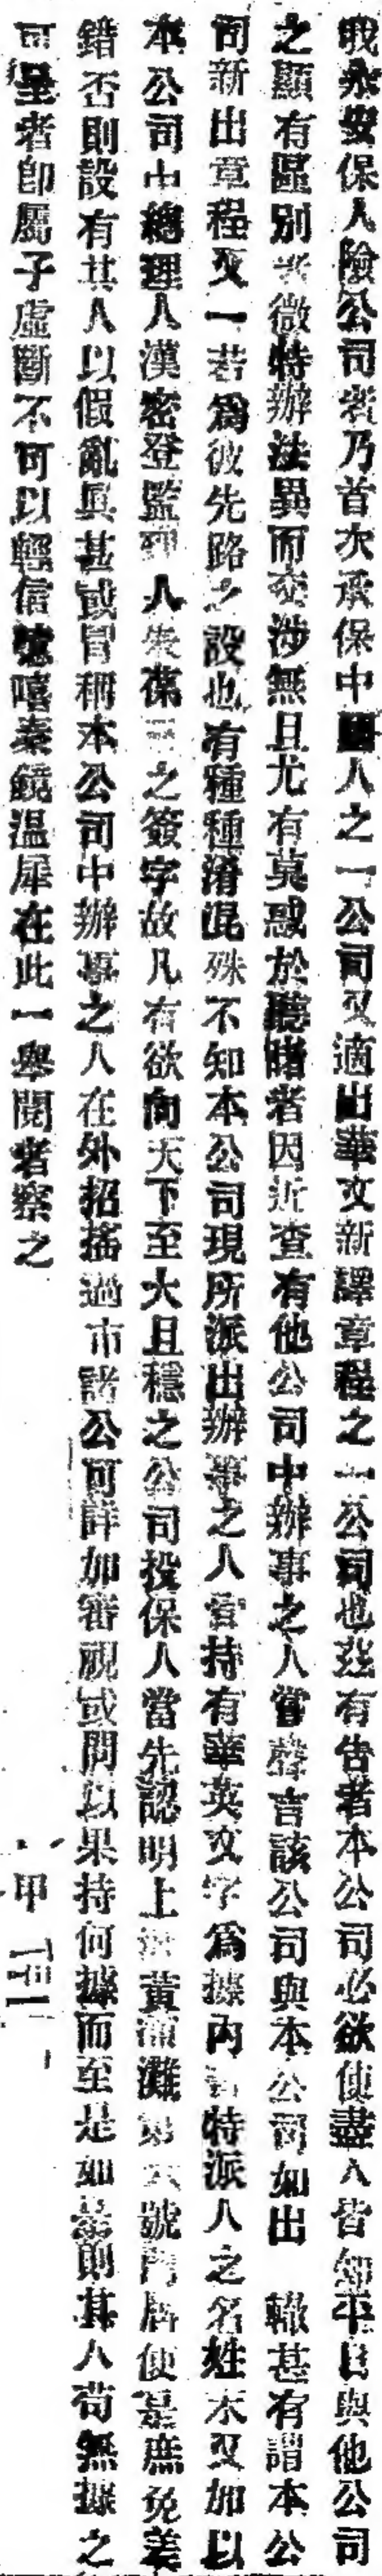 我永安保人險公司者乃首次承保中國人之一公司又適出華文新譯章程之一公司也茲有告者本公司必欲使盡人皆知平日與他公司
之顯有區別者微特辦法異而交涉無且尤有莫惑於聽睹者因近查有他公司中辦事之人嘗聲言該公司與本公司如出 轍甚有謂本公
司新出章程又一若為彼先路之設也有種種淆混殊不知本公司現所派出辦事之人當持有華英文字為據內 特派人之名姓末又加以
本公司中總理人漢密登監理人朱葆三之簽字故凡有欲向天下至大且穩之公司投保人當先認明上海黃浦灘第六號門牌便是庶免差
錯否則設有其人以假亂真甚或冒稱本公司中辦事之人在外招搖過市諸公可詳加審視或問以果持何據而至是如 則其人苟無據之
可呈者即屬子虛斷不可以輕信噫嘻秦鏡溫犀在此一舉閱者察之
甲